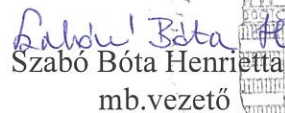 Szabó Bóta H
Szabó Bóta Henrietta
mb.vezető